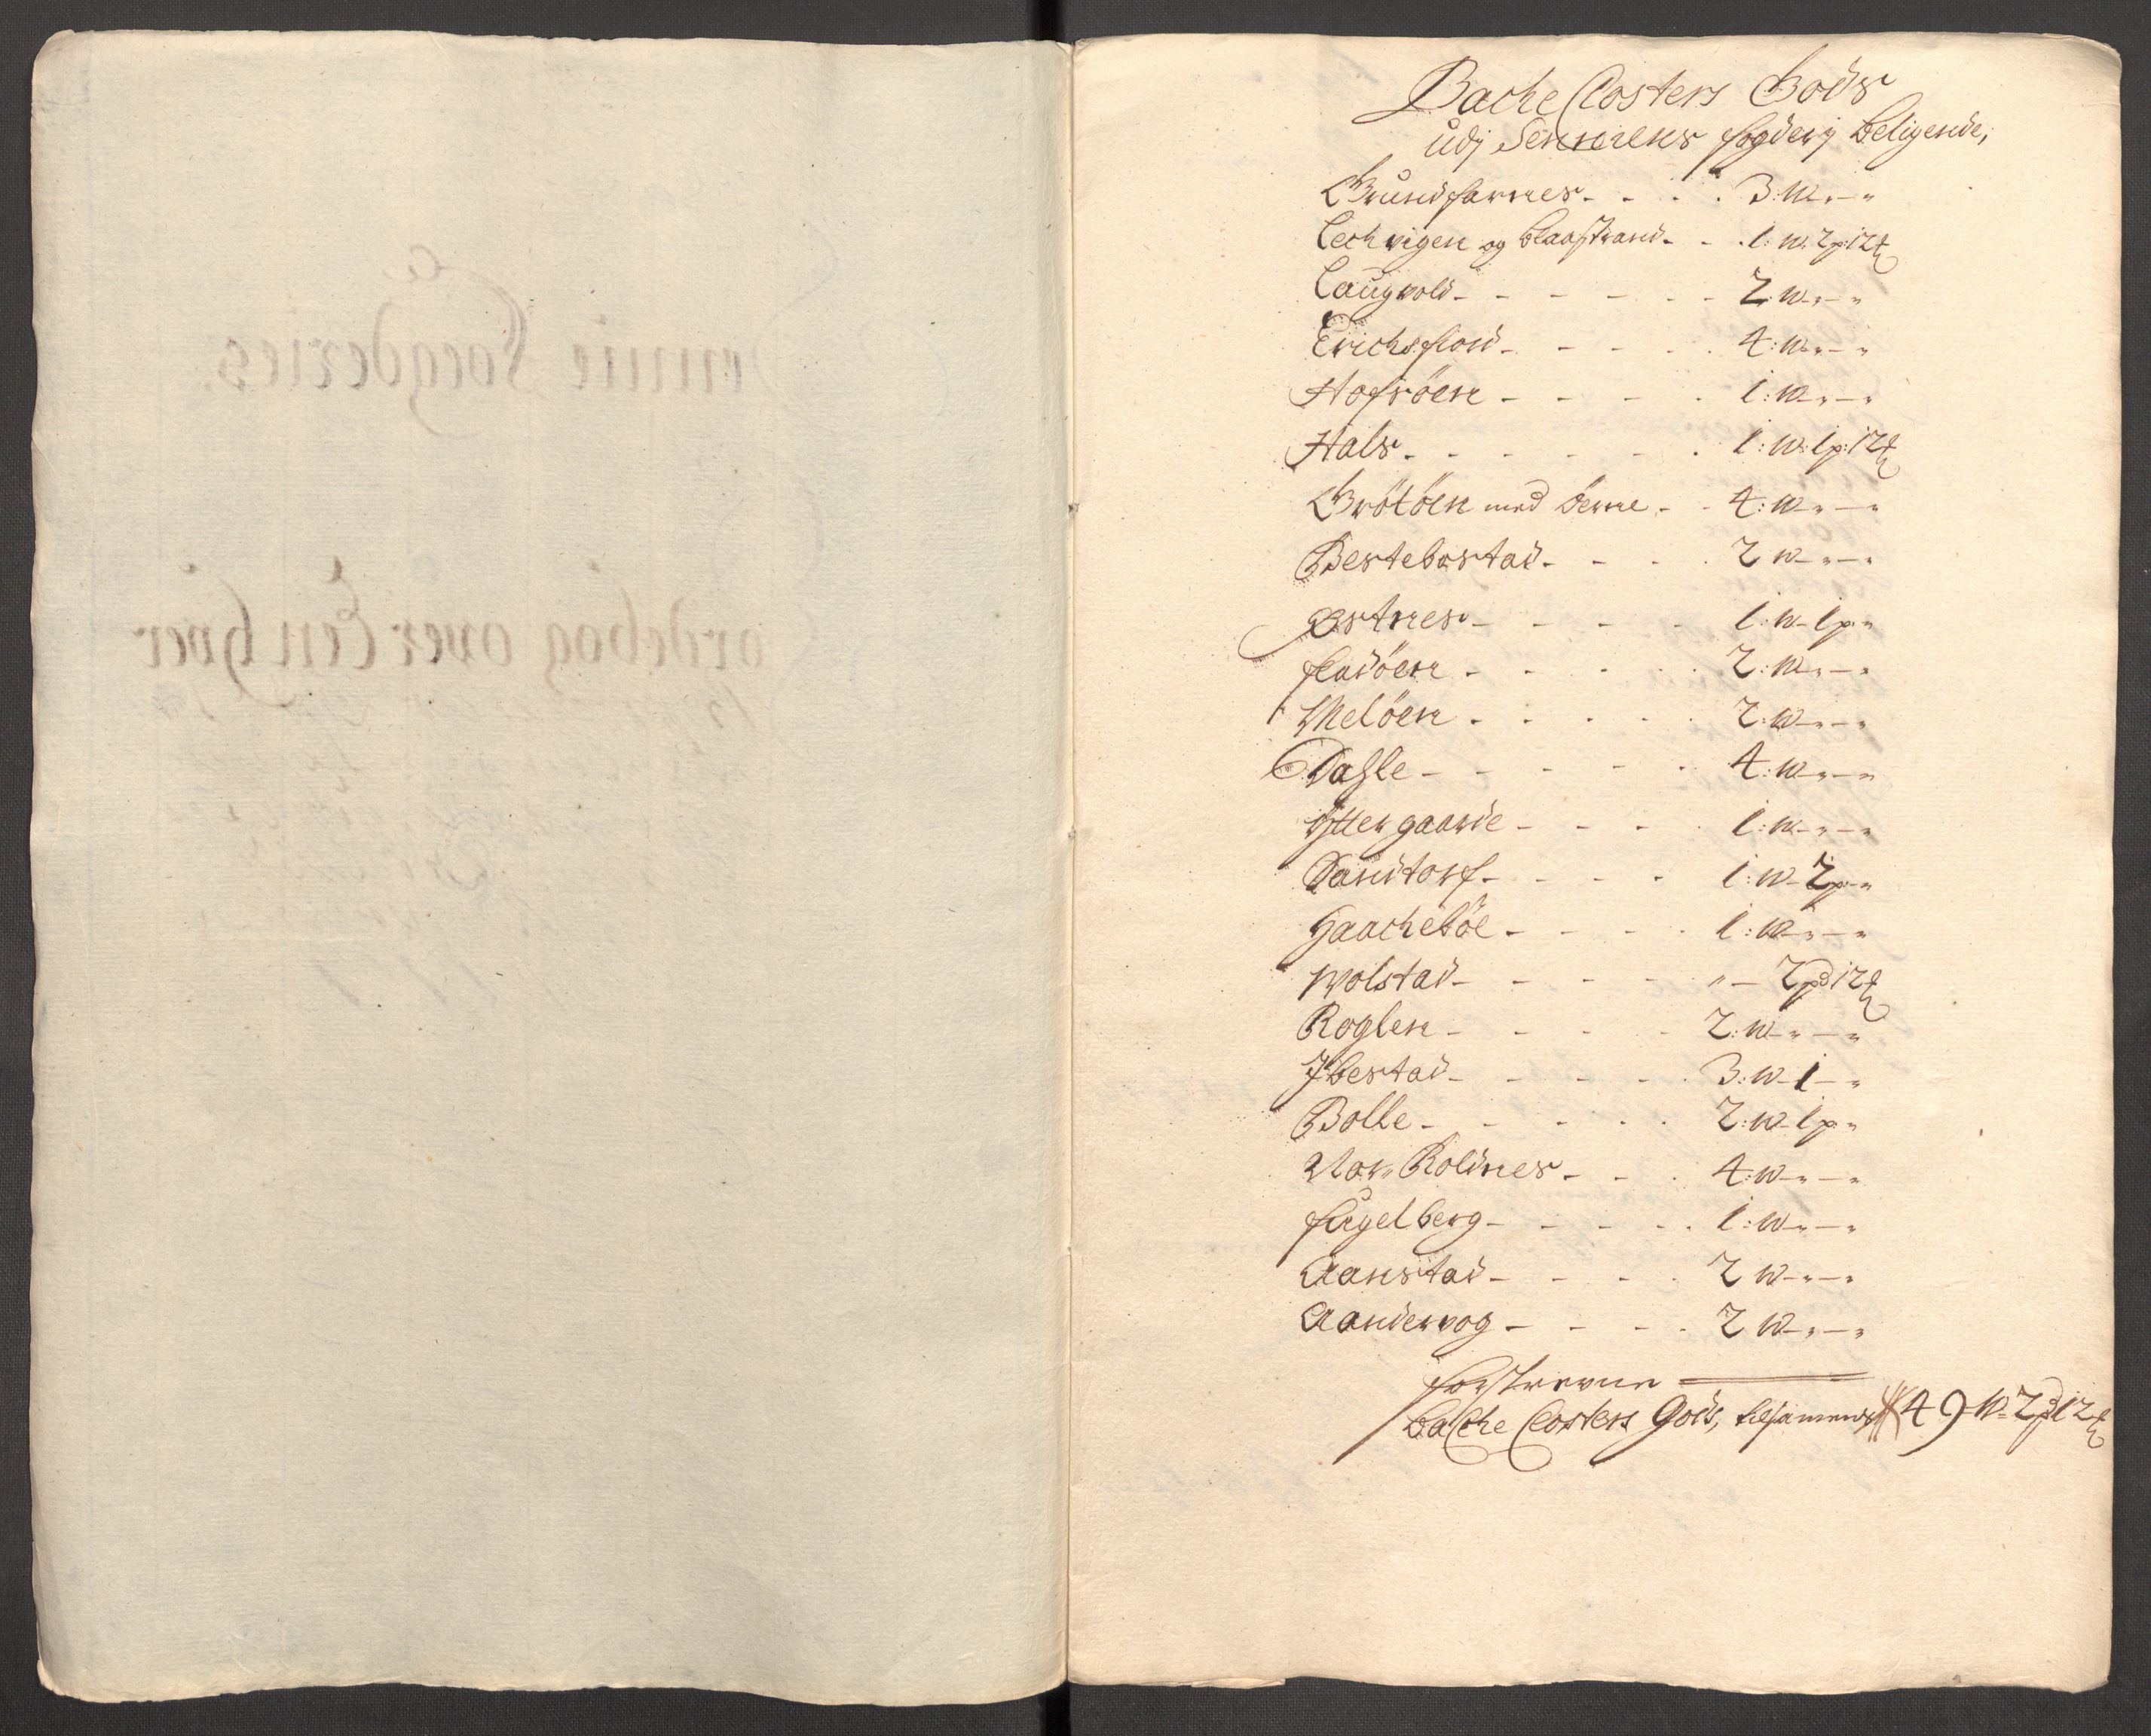 Bache Closters Gods
udj Senniens fogderj beligende,
Grundfarnes - - - . 3: W - " - "
Lechvigen og blaastrand - - . 1: W. 2 p: 12 ℔
Laugvold - - - - - - 2: W - " - "
Erichsfiord - - - - . 4: W - " - "
Hofsöen - - - - . 1: W - " - "
Hals - - - - - - . 1: W: 1 p: 12 ℔
Grötöen med Öerne - - 4: W - " - "
Bestebostad - - - . 2 W - " - "
Østnes - - - - - 1: W - 1 p - "
fladöen - - - - - 2: W - " - "
Melöen - - - - - 2: W - " - "
Dahle - - - - - - 4: W - " - "
Yttergaarde - - - - 1: W - " - "
Sandtorf - - - - - 1: W - 2 p - "
Gaacheböe - - - - 1: W - " - "
Wolstad - - - - - " - 2 pd 12 ℔
Roglen - - - - - 2: W - " - "
Ibestad - - - - - 3: W - 1 - "
Bolle - - - - - - 2: W - 1 p - "
Nor Roldnes - - - 4: W - " - "
fugelberg - - - - - 1: W - " - "
Aanstad - - - - 2 W - " - "
Aandervog - - - - 2 W - " - "
forskrevne
Bache Closters Gods, tilsamens 49 W 2 pd 12 ℔